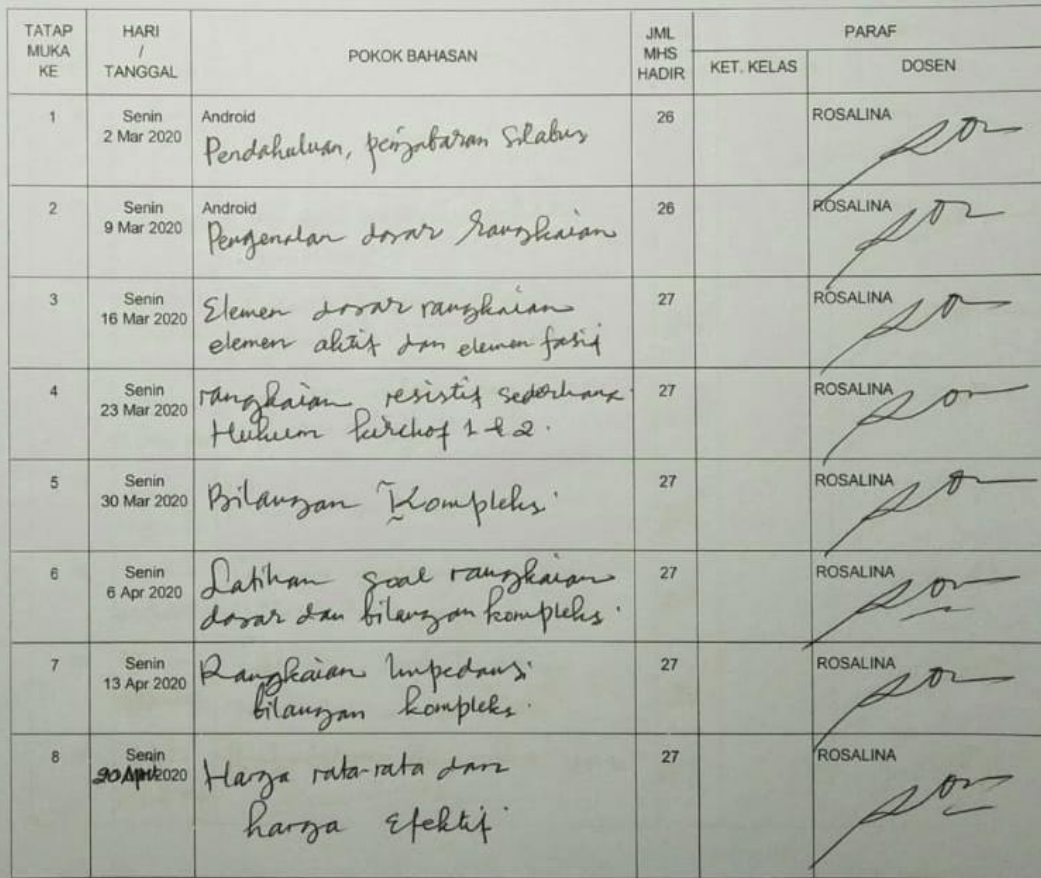 TATAP MUKA KE
HARI / TANGGAL
POKOK BAHASAN
JML MHS HADIR
PARAF
KET. KELAS
DOSEN
1
Senin
2 Mar 2020
Android
Pendahuluan, penjabaran Silabus
26
ROSALINA
2
Senin
9 Mar 2020
Android
Pengenalan dasar rangkaian
26
ROSALINA
3
Senin
16 Mar 2020
Elemen dasar rangkaian
elemen aktif dan elemen fasif
27
ROSALINA
4
Senin
23 Mar 2020
rangkaian resistif sederhana
Hukum kirchof 1 & 2.
27
ROSALINA
5
Senin
30 Mar 2020
Bilangan Kompleks.
27
ROSALINA
6
Senin
6 Apr 2020
Latihan soal rangkaian
dasar dan bilangan kompleks.
27
ROSALINA
7
Senin
13 Apr 2020
Rangkaian Impedansi
bilangan kompleks.
27
ROSALINA
8
Senin
20 April 2020
Harga rata-rata dan
harga Efektif
27
ROSALINA